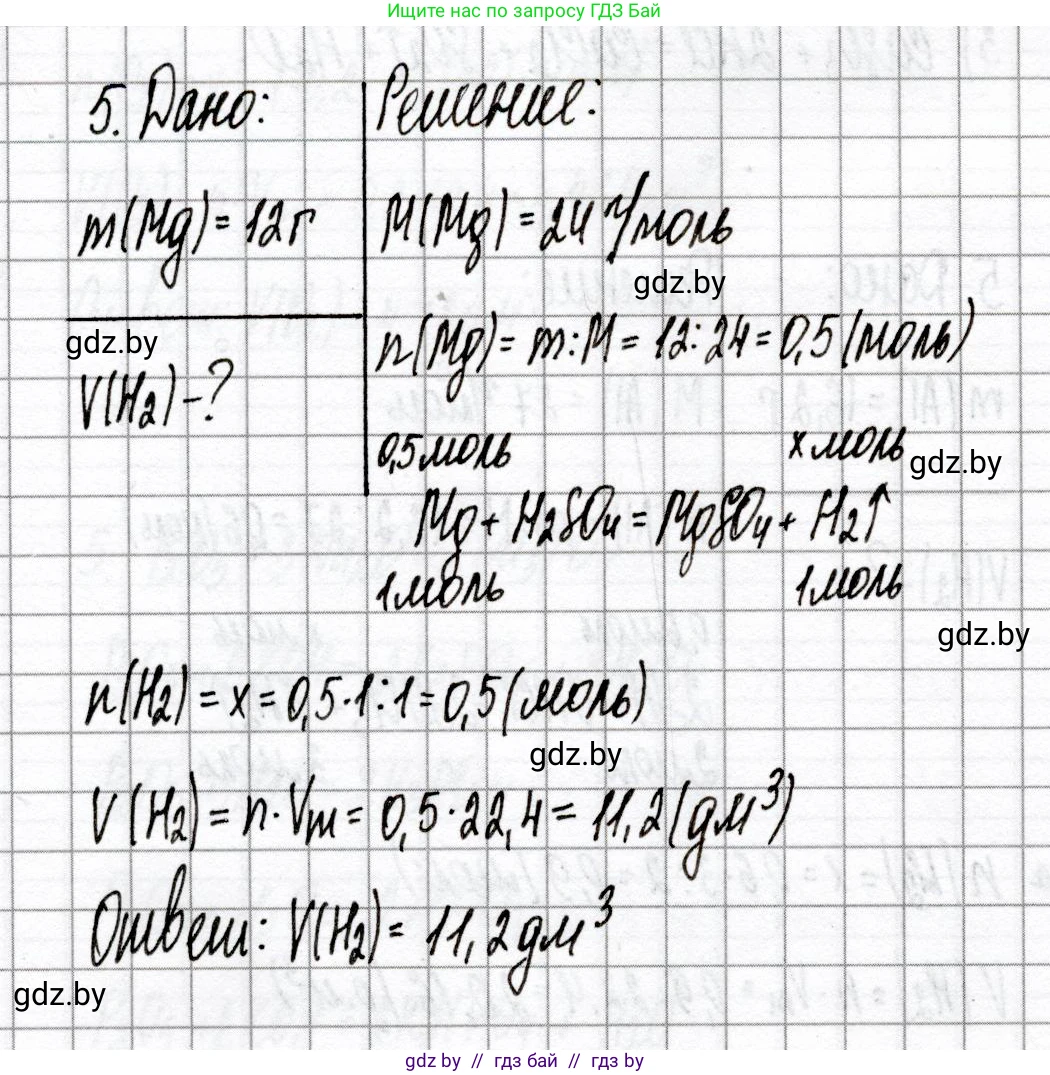 Ищите нас по запросу ГДЗ Бай
5. Дано:
Решение:
m(Mg) = 12 г
M(Mg) = 24 г/моль
gdz.by
n(Mg) = m:M = 12:24 = 0,5 (моль)
gdz.by
V(H₂) - ?
0,5 моль
x моль
gdz.by
Mg + H₂SO₄ = MgSO₄ + H₂↑
1 моль
1 моль
gdz.by
n(H₂) = x = 0,5·1:1 = 0,5 (моль)
gdz.by
V(H₂) = n·Vm = 0,5·22,4 = 11,2 (дм³)
Ответ: V(H₂) = 11,2 дм³
gdz.by
gdz.by // гдз бай // гдз by